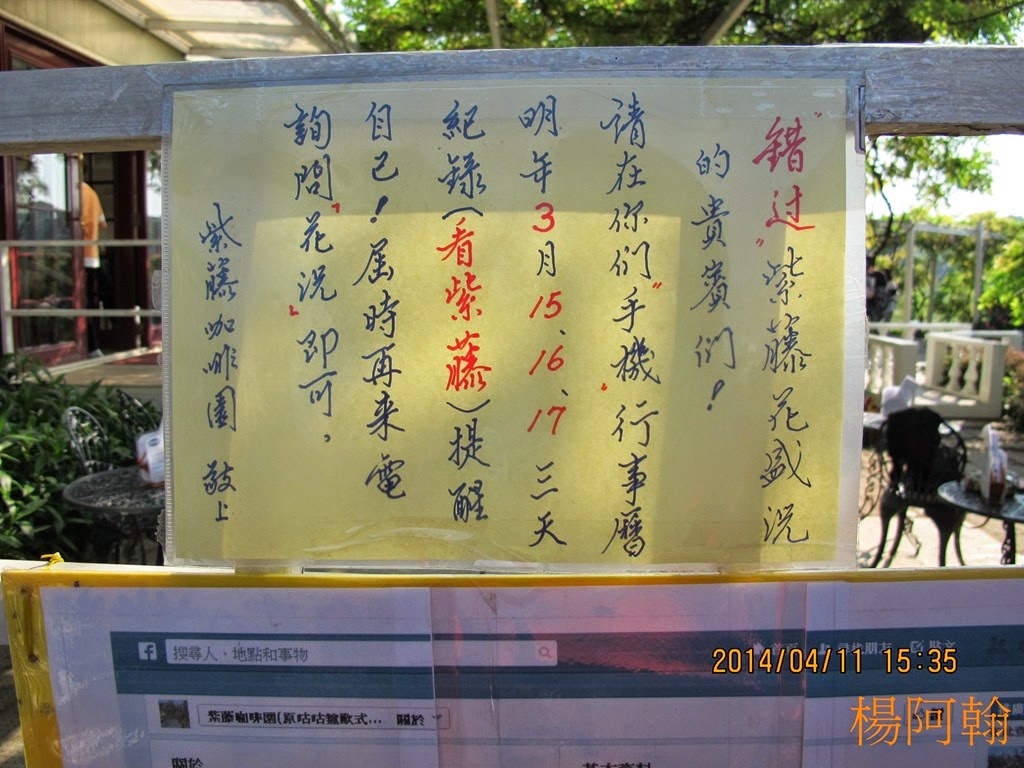 "錯过"紫藤花盛況
的貴賓們！
請在你們"手機"行事曆
明年3月15、16、17三天
紀錄(看紫藤)提醒
自己！屆時再来電
詢問『花況』即可，
紫藤咖啡園 敬上
搜尋人、地點和事物
尋找朋友
紫藤咖啡園(原咕咕黛歐式... 關於
關於
基本資料
2014/04/11 15:35
楊阿翰